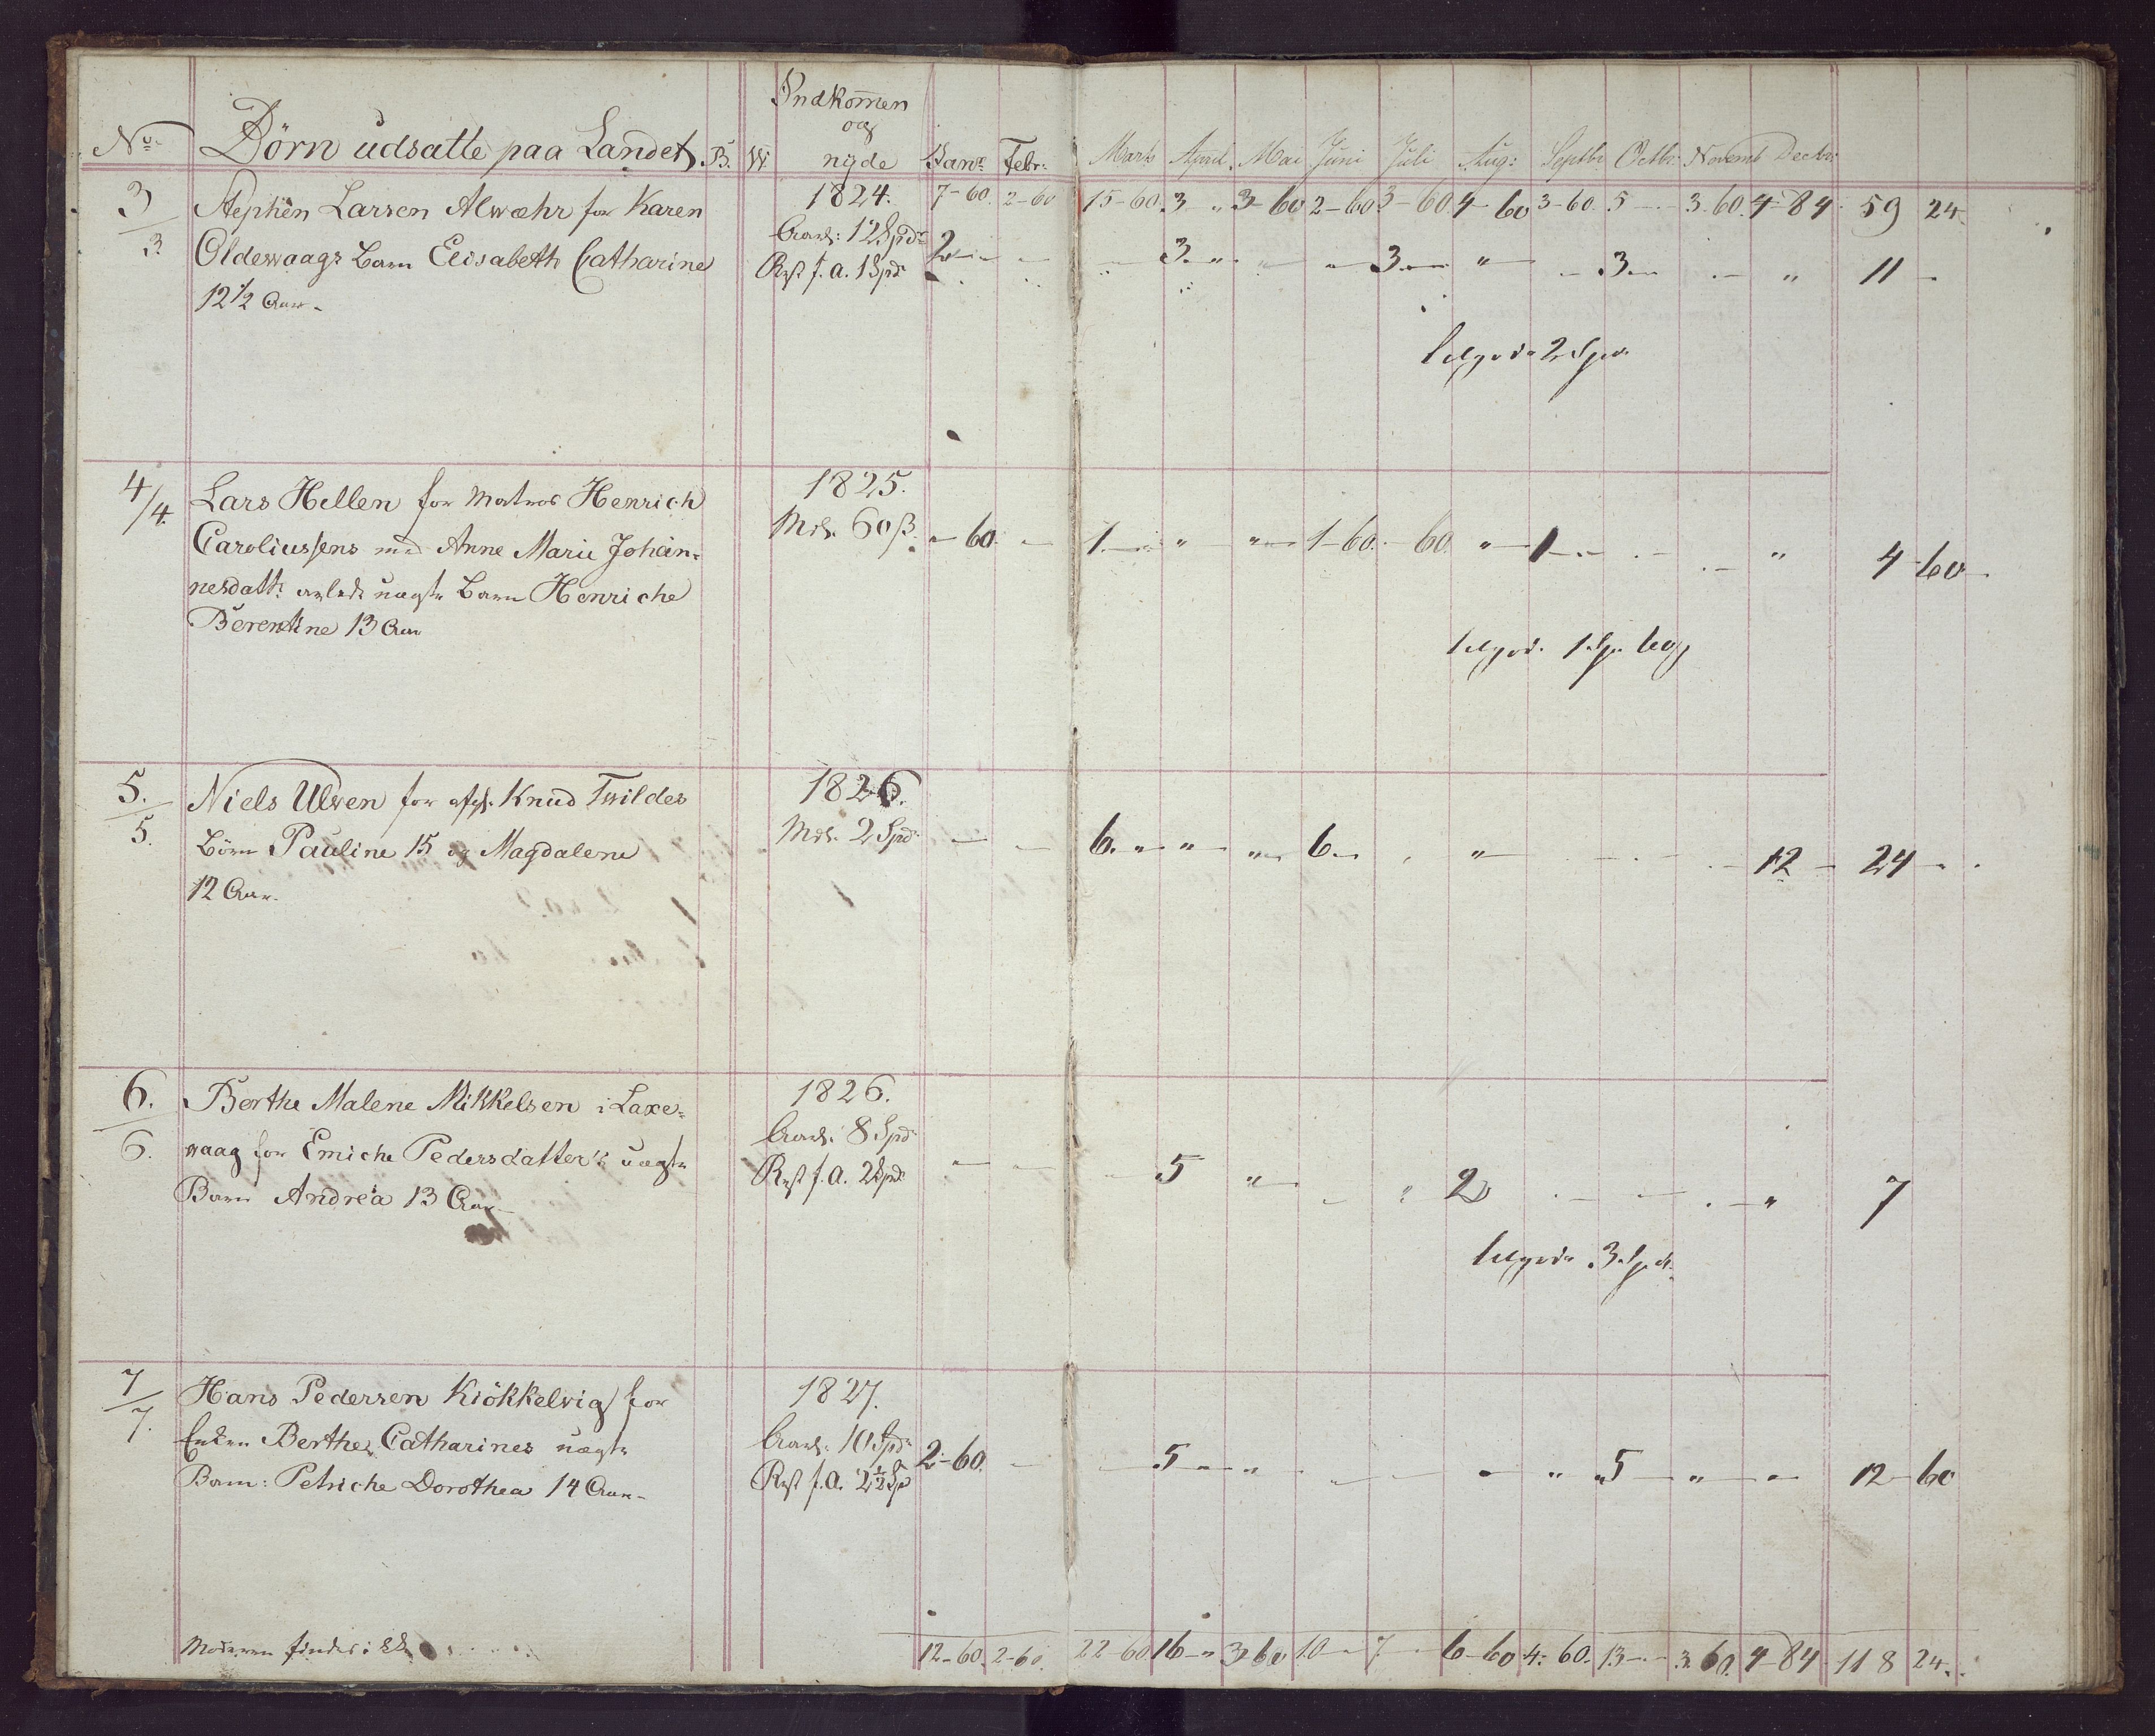 No. Börn udsatte paa Landet B. W Indkom̄en og nyde Janr. Febr. Marts April. Mai Juni Juli Aug: Septbr Octbr: Novemb Decbr:
7-60. 2-60 15-60. 3 „ 3-60 2-60 3-60. 4-60 3-60. 5 -- 3. 60. 4-84. 59 24
3/3. Stephen Larsen Alwæhr for Karen 1824.
Oldewaags Barn Elisabeth Catharine Aarl: 12 Spd 2 - - 3. „ - 3. - „ - 3. - „ 11 -
12 1/2 Aar - Rest f. a. 1 Spd
2 Spd.
4/4. Lars Hellen for Matros Henrich 1825.
Caroliussens med Anne Marie Johan= Mdl. 60 ß. - 60. - 1. - „ „ 1-60. - 60. „ 1 - - „ 4-60.
nesdatt: avlede uægte Barn Henriche
Berentine 13 Aar
1 Sp. 60 ß
5./5. Niels Ulven for afg. Knud Tvildes 1826.
Börn Pauline 15 og Magdalene Mdl. 2 Spd - - 6. - „ - „ 6. - „ - - - 12 - 24 -
12 Aar.
6./6. Berthe Malene Mikkelsen i Laxe= 1826.
waag for Emiche Pedersdatter's uægte Aarl. 8 Spd - - - 5 „ - „ 2 - - - „ 7
Barn Andrea 13 Aar - Rest f. a. 2 Spd
3 Spd.
7/7. Hans Pedersen Kiökkelvig for 1827.
Enken Berthe Catharines uægte Aarl: 10 Spd 2-60. - - 5 - „ - - - „ 5 „ - - 12-60
Barn: Petriche Dorothea 14 Aar - Rest f. a. 2 1/2 Sp
Moderen findes i
12-60. 2-60. 22-60 16-„ 3-60 10 - 7 - 6-60 4-60. 13 -- 3. 60. 4-84. 118 24.